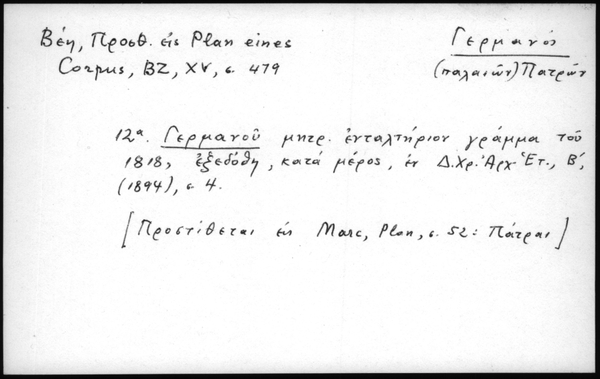 Βέη, Προσθ. εἰς Plan eines
Corpus, BZ, XV, σ. 479
Γερμανός
(παλαιῶν) Πατρῶν
12α. Γερμανοῦ μητρ. ἐνταλτήριον γράμμα τοῦ
1818, ἐξεδόθη, κατά μέρος, ἐν Δ.Χρ. Ἀρχ. Ἑτ., Β΄,
(1894), σ. 4.
[Προστίθεται εἰς Marc, Plan, σ. 52: Πάτραι]